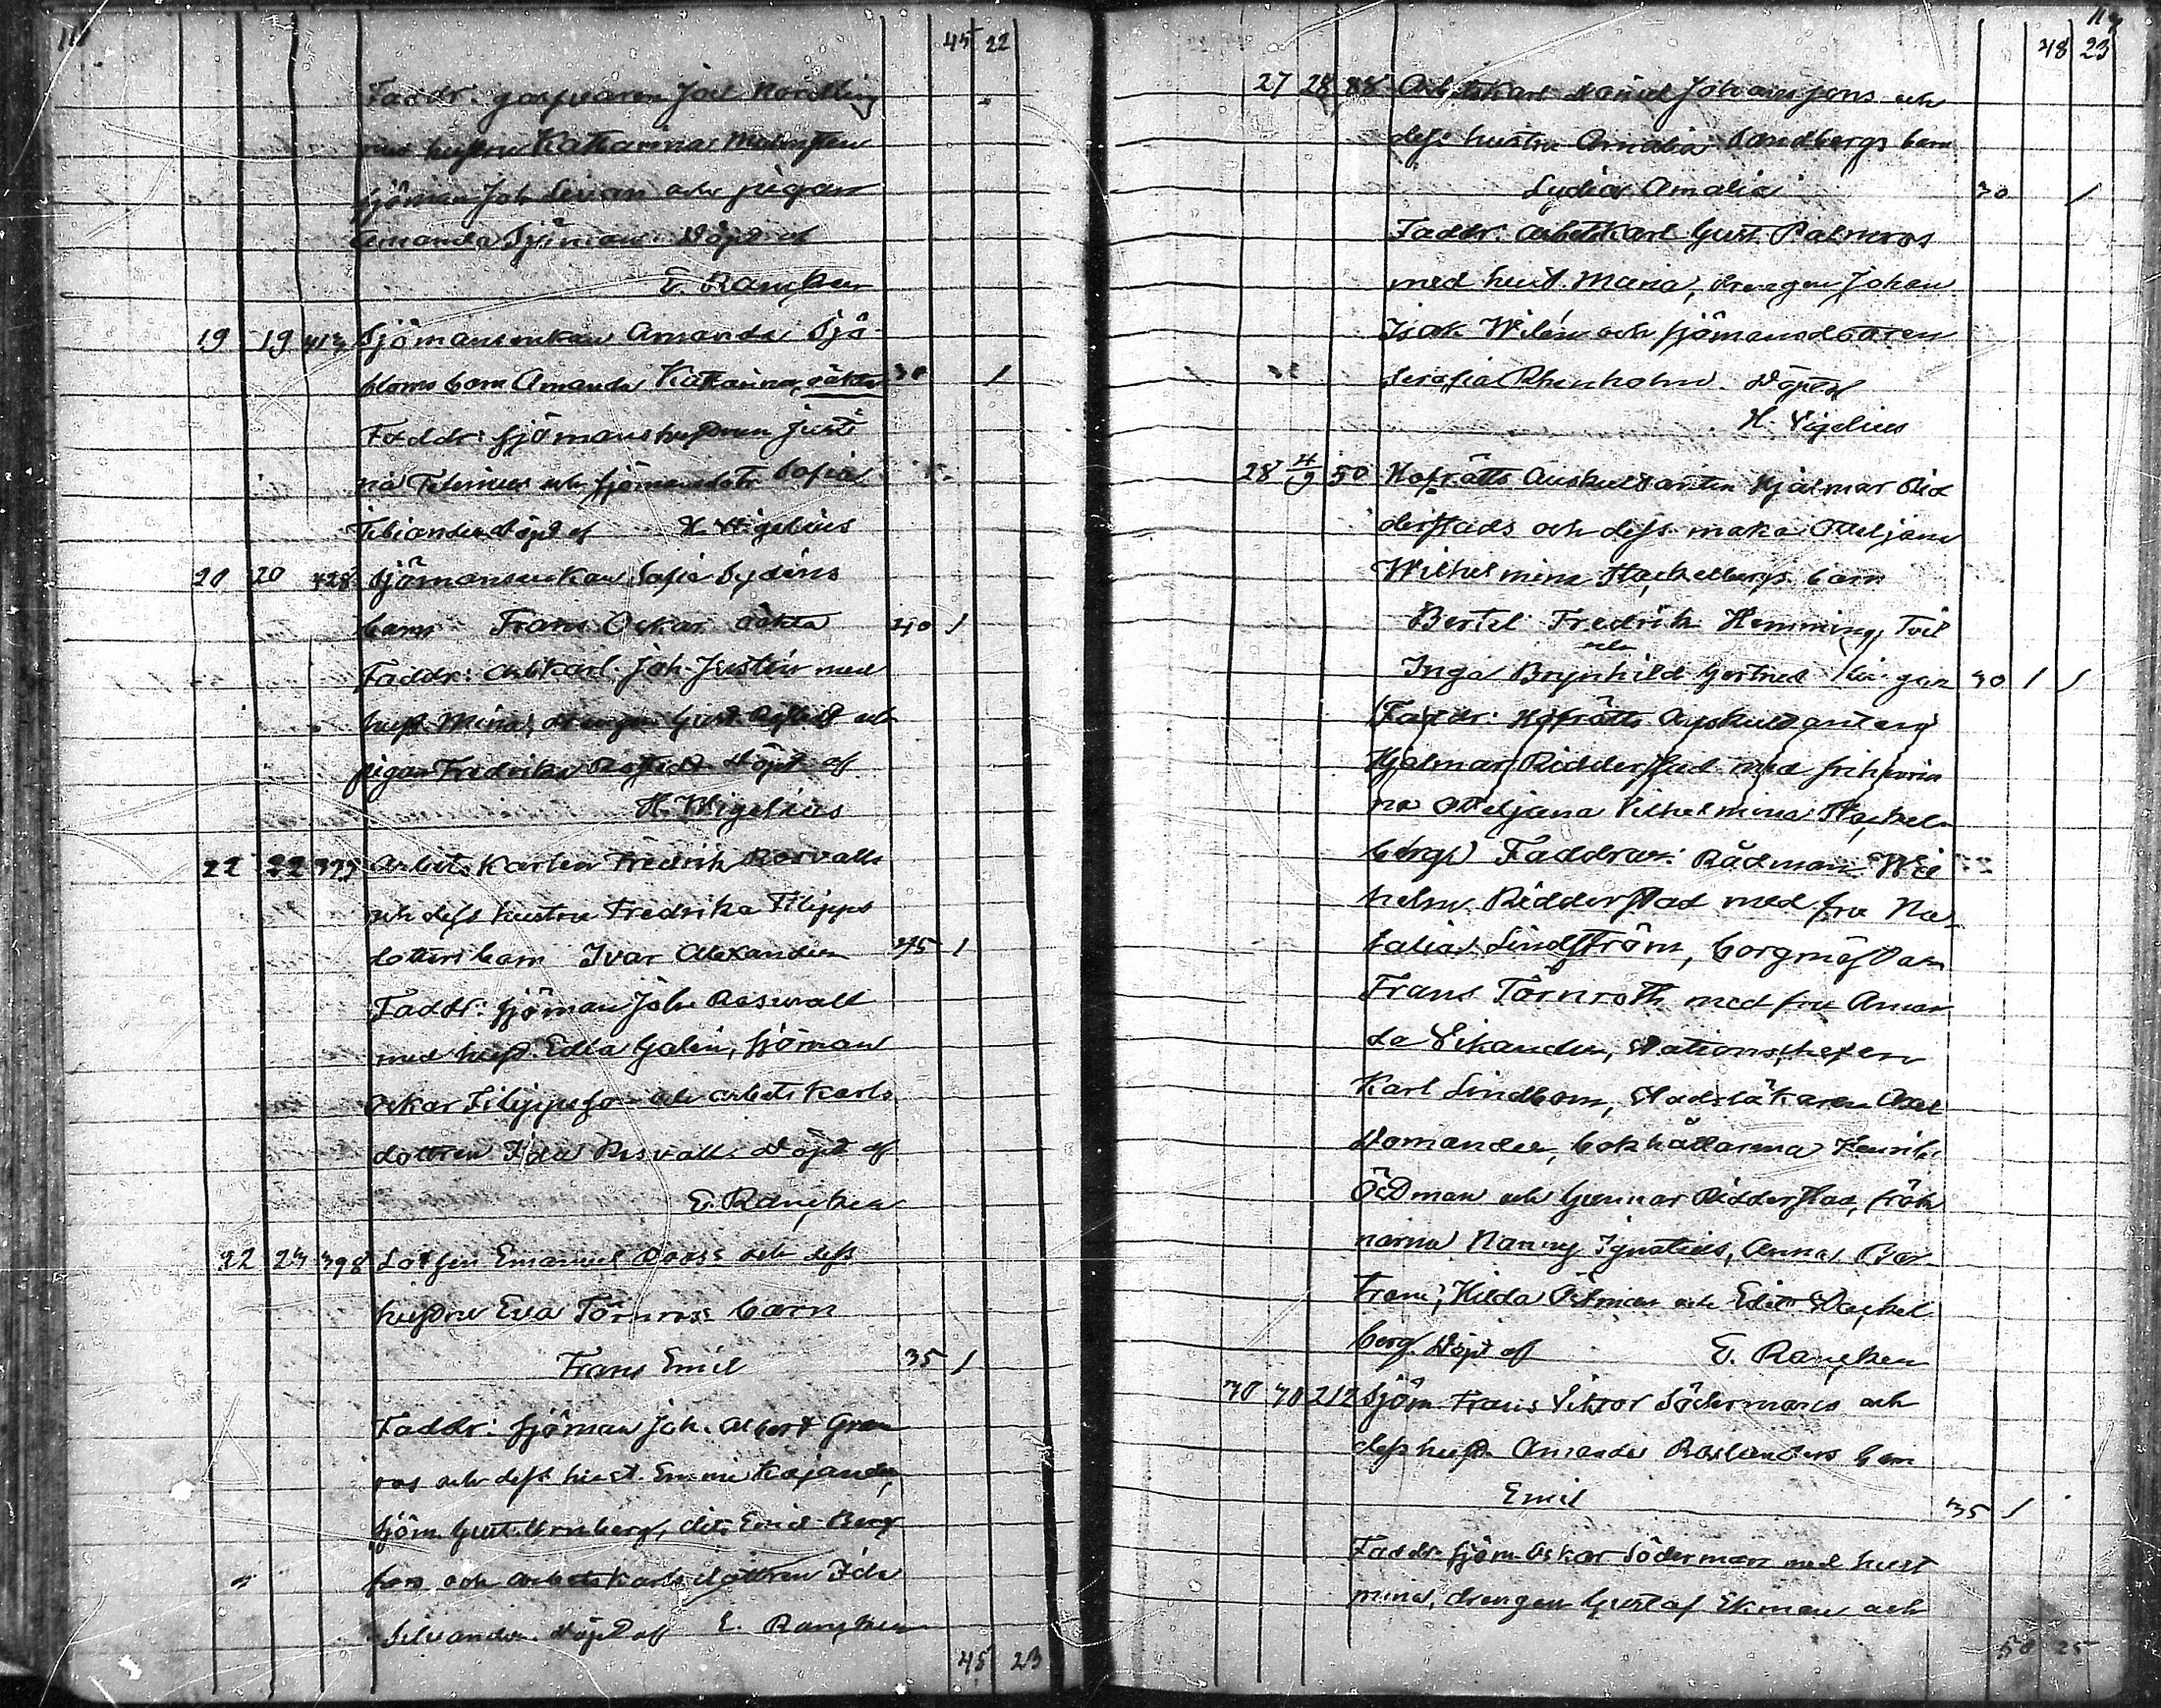 45 22
Faddr: Joel Nordling
med hustru Katharina Malmsten
sjöman Joh Sevon och pigan
Amanda Sjöman. Döpt af
E. Rancken
19 19 413 Sjömansenkan Amanda Sjö-
bloms barn Amanda Katarina, oäkta 30 1
Faddr: sjömanshustrun Justi
na och sjömansdotr Sofia
döpt af H. Wigelius
20 20 428 Sjömansenkan Sofia Lydéns
barn Frans Oskar oäkta 40 1
Faddr: arbkarl. Joh. Justén med
hust. Mina, drengen Gust. och
pigan Fredrika döpt af
H. Wigelius
22 22 Arbetskarlen Fredrik Rosvalls
och dess hustru Fredrika Filipps
dotters barn Ivar Alexander 45 1
Faddr: sjöman Joh. Roswall
med hust. Edla Galin, sjöman
Oskar Filippsson och arbetskarls
dottren Ida Rosvall. Döpt af
E. Rancken
22 23 398 Lotsen Emanuel Roos's och dess
hustru Eva Törnros. barn
Frans Emil 35 1
Faddr: sjöman Joh. Albert Gran
ros och dess hust. Emmi Kajander,
sjöm Gust. Urnberg, dito Emil Berg
fors och arbetskarlsdottren Ida
Silvander. döpt af E. Rancken
45 23
48 23
27 28 88 Arbetskarl Daniel Johanssons och
dess hustru Amalia Sandbergs barn
Lydia Amalia 30 1
Faddr. arbetskarl Gust. Palmros
med hust. Maria, drengen Johan
Isak Wilén och sjömansdottren
Serafia Rhenholm. Döpt af
H. Vigelius
28 4/9 50 Hofrätts Auskultanten Hjalmar Rid
derstads och dess maka Otteljana
Wilhelmina Stackelbergs barn
Bertel Fredrik Hemming, Tvil
och
Inga Brynhild Gertrud lingar 30 1 1
(Faddr: Hofrätts Auskultanten
Hjalmar Ridderstad med friherrin
na Otteljana Vilhelmina Stackel-
bergs) Faddrar: Rådman Wil
helm Ridderstad med fru Na-
talia Lindström, borgmästaren
Frans Törnroth med fru Aman
da Vikander, stationschefen
Karl Lindbom, stadsläkaren Axel
Domander, bokhållarna Henrik
Öhman och Gunnar Ridderstad, frök
narna Nanny Ignatius, Anna
Hilda Öhman och Edit Stackel
berg. Döpt af E. Rancken
30 30 212 Sjöm Frans Viktor Södermans och
dess hust. Amanda Roslanders barn
Emil 35 1
Faddr. sjöm Oskar Söderman med hust
mina, drengen Gustaf Ekman och
50 25